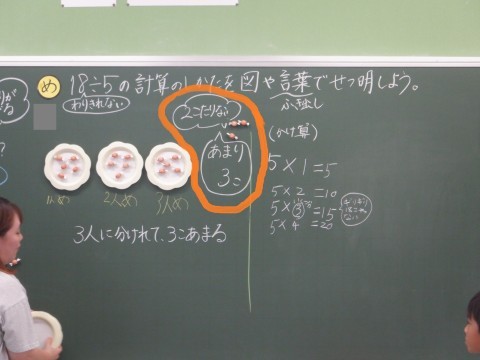 め
18÷5の計算のしかたを図や言葉でせつ明しよう。
わりきれない
ふき出し
2こたりない
あまり
3こ
1人め
2人め
3人め
3人に分けれて、3こあまる
(かけ算)
5×1=5
5×2=10
5×3=15
5×4=20